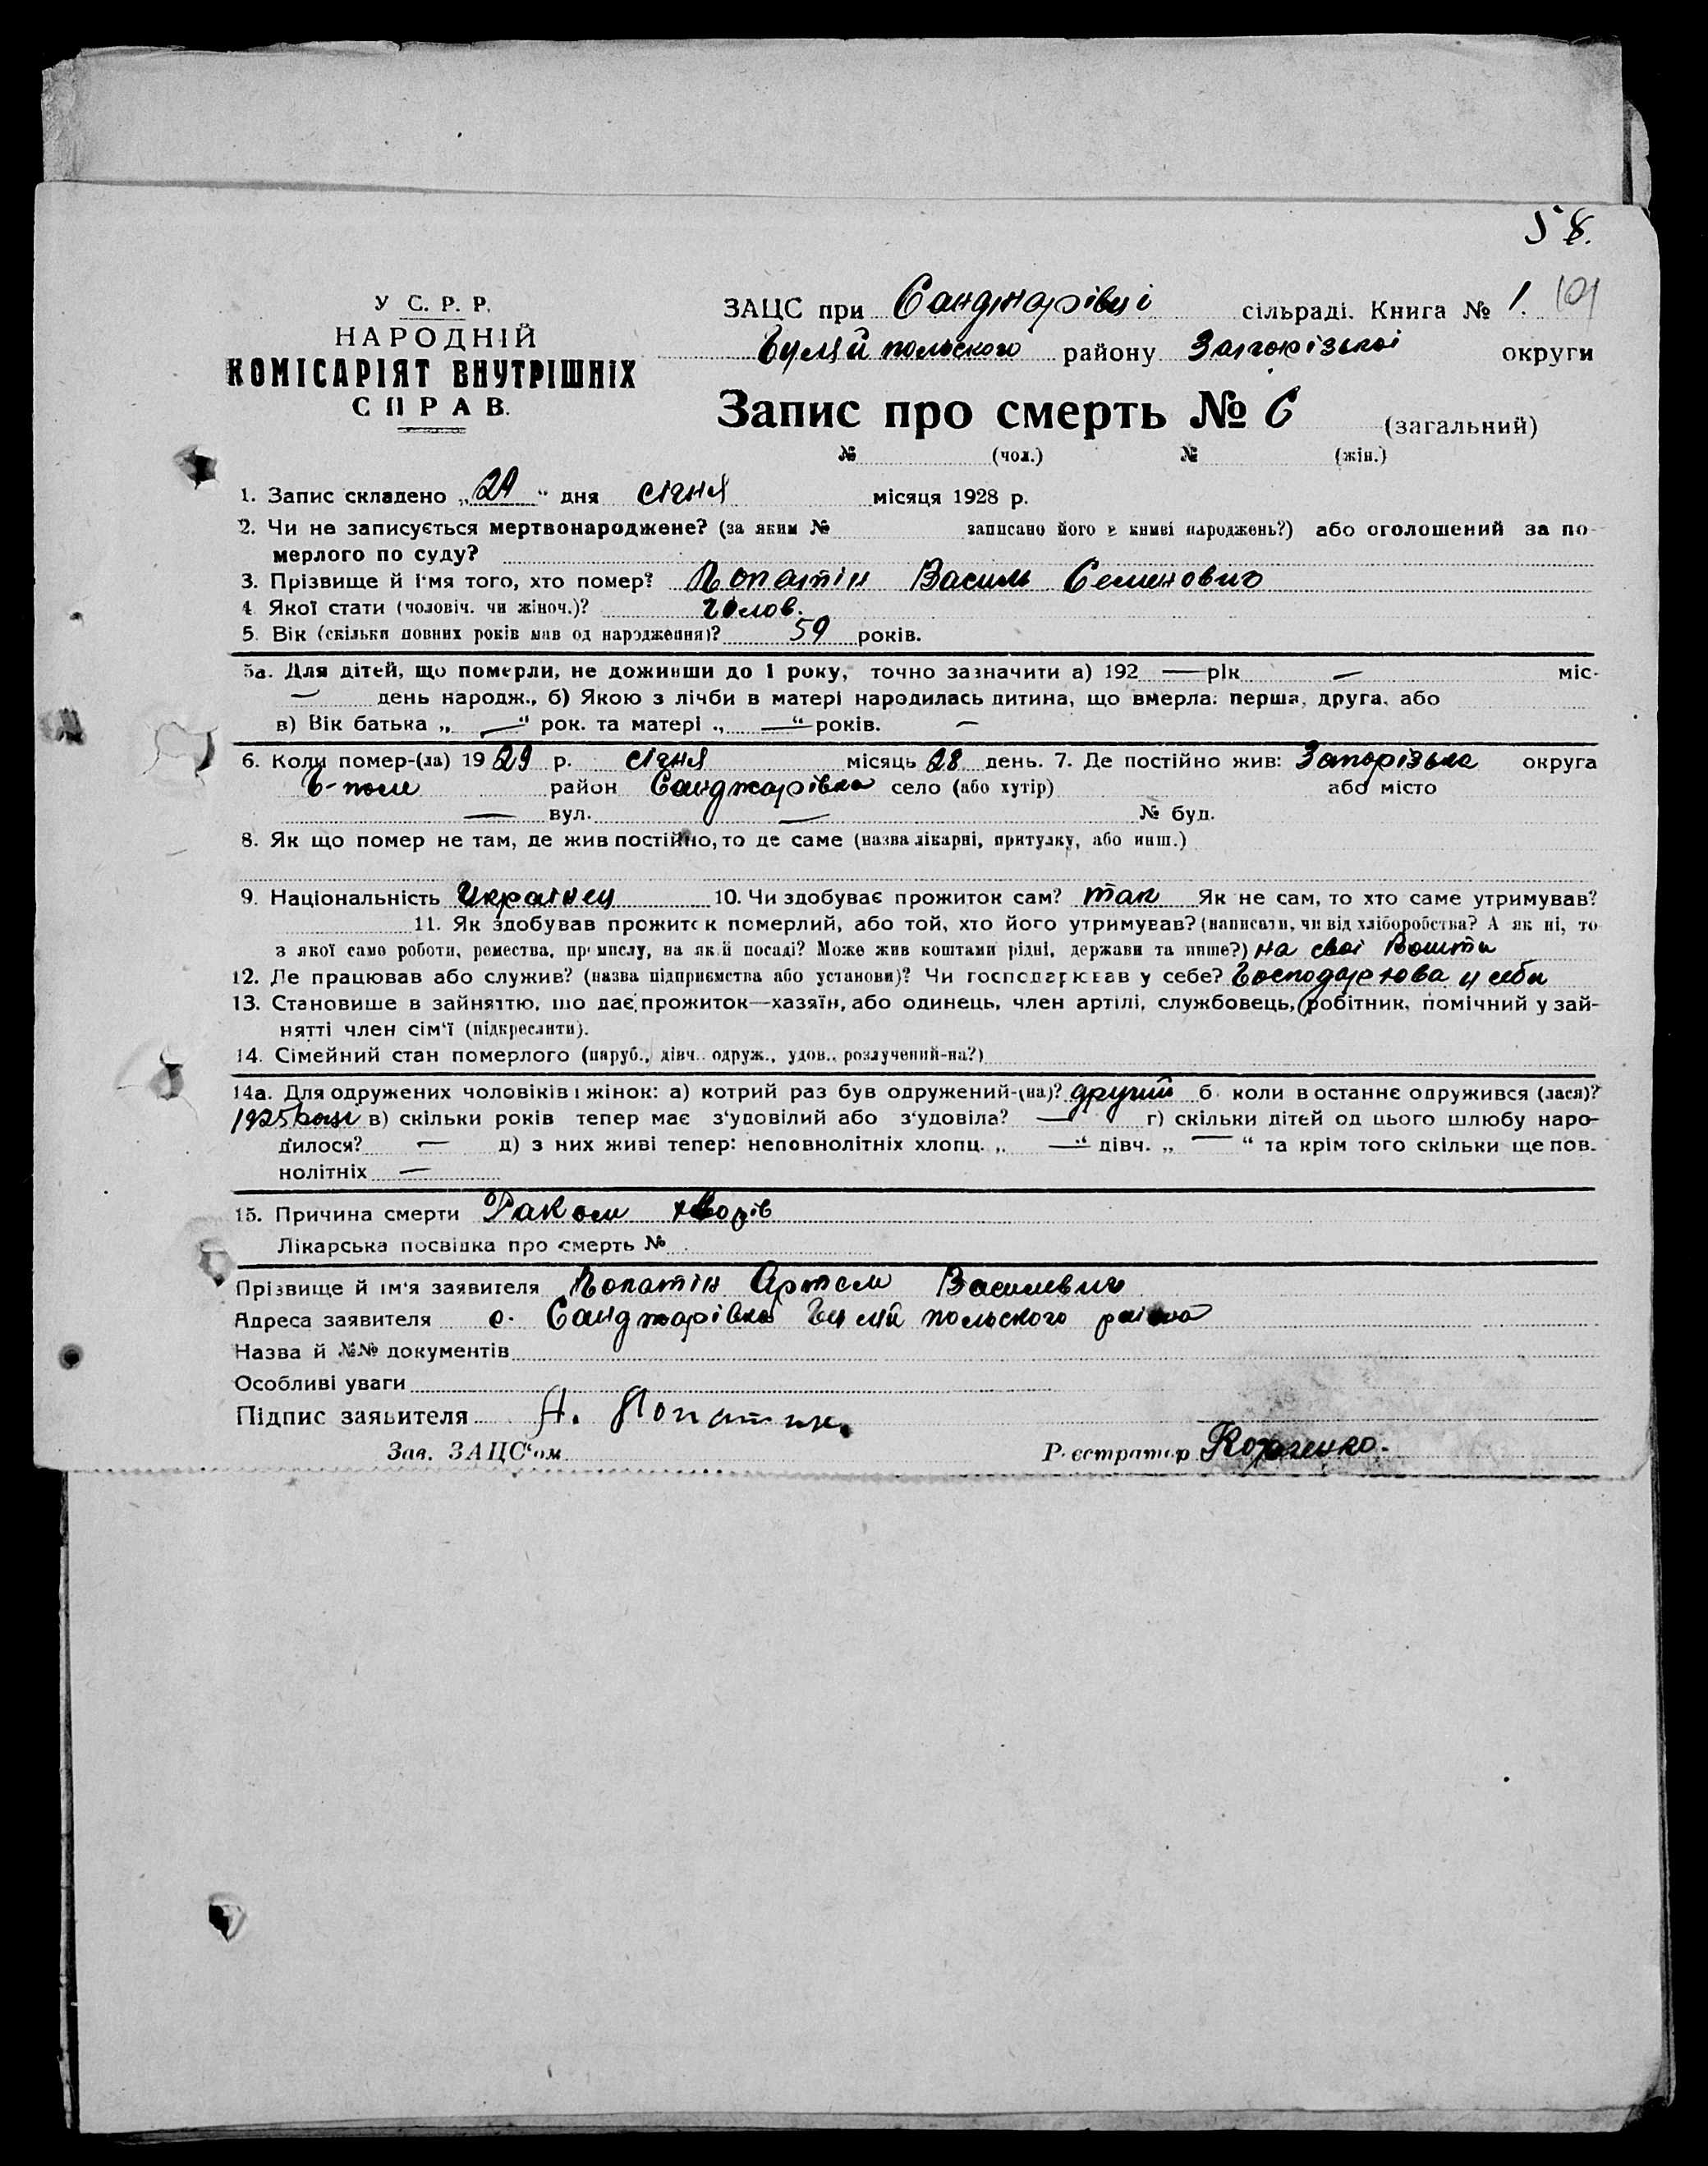 58.
У С. Р. Р.
НАРОДНІЙ
КОМІСАРІЯТ ВНУТРІШНІХ
СПРАВ.
ЗАЦС при Санджарівці сільраді. Книга № 1.
Гуляй польского району Запорізької округи
Запис про смерть № 6 (загальний)
№ (чол.) № (жін.)
1. Запис складено „29“ дня січня місяця 1928 р.
2. Чи не записується мертвонароджене? (за яким № записано його в книзі народжень?) або оголошений за по-
мерлого по суду?
3. Прізвище й ім'я того, хто помер? Лопатін Василь Семенович
4 Якої стати (чоловіч. чи жіноч.)? чолов.
5. Вік (скільки повних років мав од народження)? 59 років.
5а. Для дітей, що померли, не доживши до 1 року, точно зазначити а) 192 — рік — міс.
— день народж., б) Якою з лічби в матері народилась дитина, що вмерла: перша, друга, або
в) Вік батька „ — “ рок. та матері „ — “ років. —
6. Коли помер-(ла) 1929 р. січня місяць 28 день. 7. Де постійно жив: Запорізька округа
Г-поле район Санджарівка село (або хутір) або місто
— вул. — № буд.
8. Як що помер не там, де жив постійно, то де саме (назва лікарні, притулку, або инш.)
9. Національність Українец 10. Чи здобуває прожиток сам? так Як не сам, то хто саме утримував?
11. Як здобував прожиток померлий, або той, хто його утримував? (написати, чи від хліборобства? А як ні, то
з якої само роботи, ремества, промислу, на якій посаді? Може жив коштами рідні, держави та инше?) на свої Кошти
12. Де працював або служив? (назва підприємства або установи)? Чи господарював у себе? Господарював у себе
13. Становище в зайняттю, що дає прожиток—хазяїн, або одинець, член артілі, службовець, робітник, помічний у зай-
нятті член сім'ї (підкреслити).
14. Сімейний стан померлого (паруб., дівч. одруж., удов., розлучений-на?)
14а. Для одружених чоловіків і жінок: а) котрий раз був одружений-(на)? другий б коли востаннє одружився (лася)?
1925 в) скільки років тепер має з'удовілий або з'удовіла? — г) скільки дітей од цього шлюбу наро-
дилося? — д) з них живі тепер: неповнолітніх хлопц. „ — “ дівч. „ — “ та крім того скільки ще пов-
нолітніх —
15. Причина смерти Раком хворів
Лікарська посвідка про смерть №
Прізвище й ім'я заявителя Лопатін Артем Василевич
Адреса заявителя с. Санджарівка Гуляй польского району
Назва й №№ документів
Особливі уваги
Підпис заявителя А. Лопатин.
Зав. ЗАЦС'ом Реєстратор